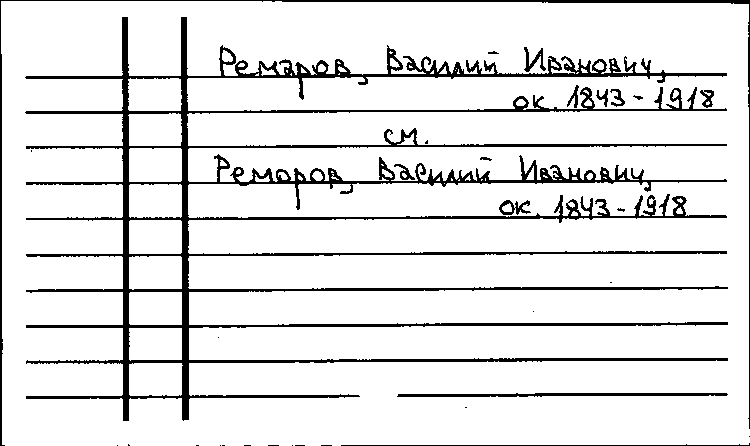 Ремаров, Василий Иванович,
ок. 1843-1918
см.
Реморов, Василий Иванович,
ок. 1843-1918